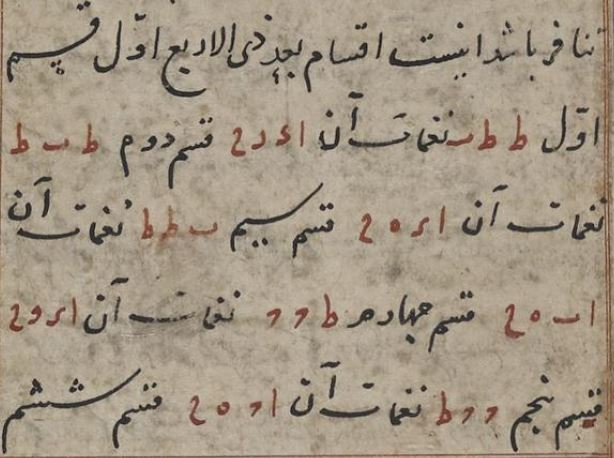 تنافر باشد اینست اقسام بعد ذی الاربع اول قسم
اول ط ط ب نغمات آن ا د ز ح قسم دوم ط ب ط
نغمات آن ا د ه ح قسم سیم ب ط ط نغمات آن
ا ب ه ح قسم چهارم ط ج ج نغمات آن ا د و ح
قسم پنجم ج ج ط نغمات آن ا ج ه ح قسم ششم